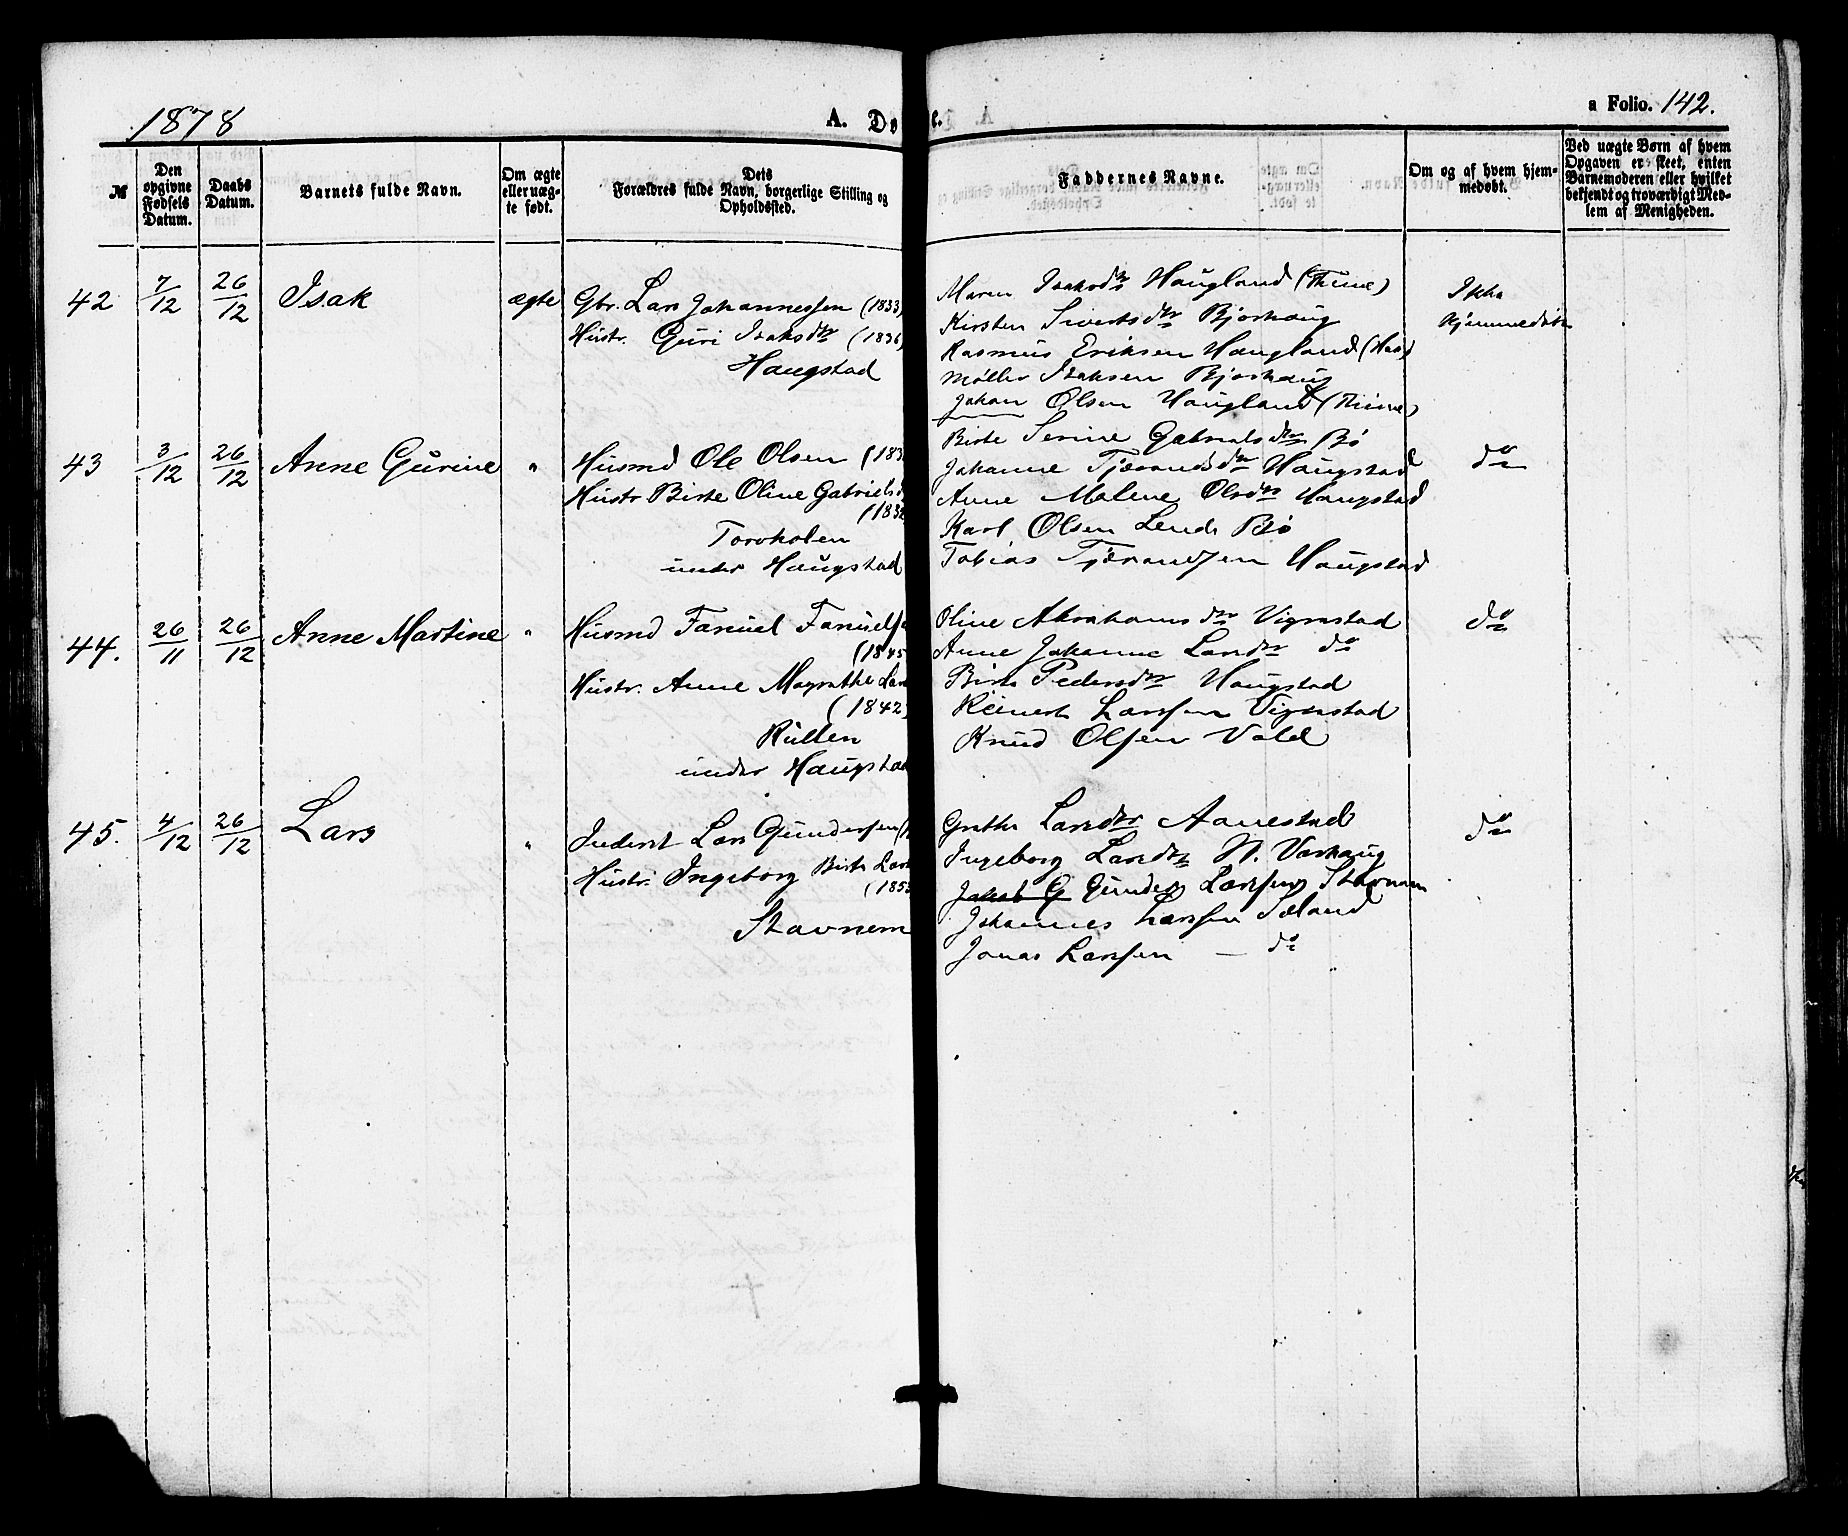 1878
A. Dø
e.
a Folio. 142.
№
Den opgivne Fødsels Datum.
Daabs Datum.
Barnets fulde Navn.
Om ægte eller uæg-te født.
Dets Forældres fulde Navn, borgerlige Stilling og Opholdssted.
Faddernes Navne.
Om og af hvem hjem-medøbt.
Ved uægte Børn af hvem Opgaven er skeet, enten Barnemoderen eller hvilket bekjendt og troværdigt Med-lem af Menigheden.
42 7/12 26/12 Isak ægte
Gbr. Lars Johannessen (1833)
Hustr. Guri Isaksdtr (1836)
Haugstad
Maren Isaksdtr Haugland (Thime)
Kirsten Sivertsdtr Bjorhaug
Rasmus Eriksen Haugland (Haa)
Møller Isaksen Bjorhaug
Johan Olsen Haugland (Thime)
Ikke
hjemmedøbt
43 3/12 26/12 Anne Gurine "
Husmd Ole Olsen (183
Hustr Birte Oline Gabrielsd
(1832
Torvholen
under Haugstad
Birte Serine Gabrielsdtr Bø
Johanne Tjærandsdtr Haugstad
Anne Malene Olsdtr Haugstad
Karl Olsen Lende Bø
Tobias Tjærandsen Haugstad
do
44. 26/11 26/12 Anne Martine "
Husmd Fanuel Fanuelse
(1845
Hustr. Anne Magrethe Lars
(1842)
Rullen
under Haugstad
Oline Abrahamsdtr Vigrestad
Anne Johanne Larsdtr do
Birte Pedersdtr Haugstad
Reinert Larssen Vigrestad
Knud Olssen Vold
do
45. 4/12 26/12 Lars "
Inderst Lars Gunderssen (1
Hustr. Ingeborg Birte Lars
(185
Stavnem
Grethe Larsdtr Aanestad
Ingeborg Larsdtr N. Varhaug
Jakob G Gunder Larssen Stavnem
Johannes Larssen Sæland
Jonas Larssen — do
do